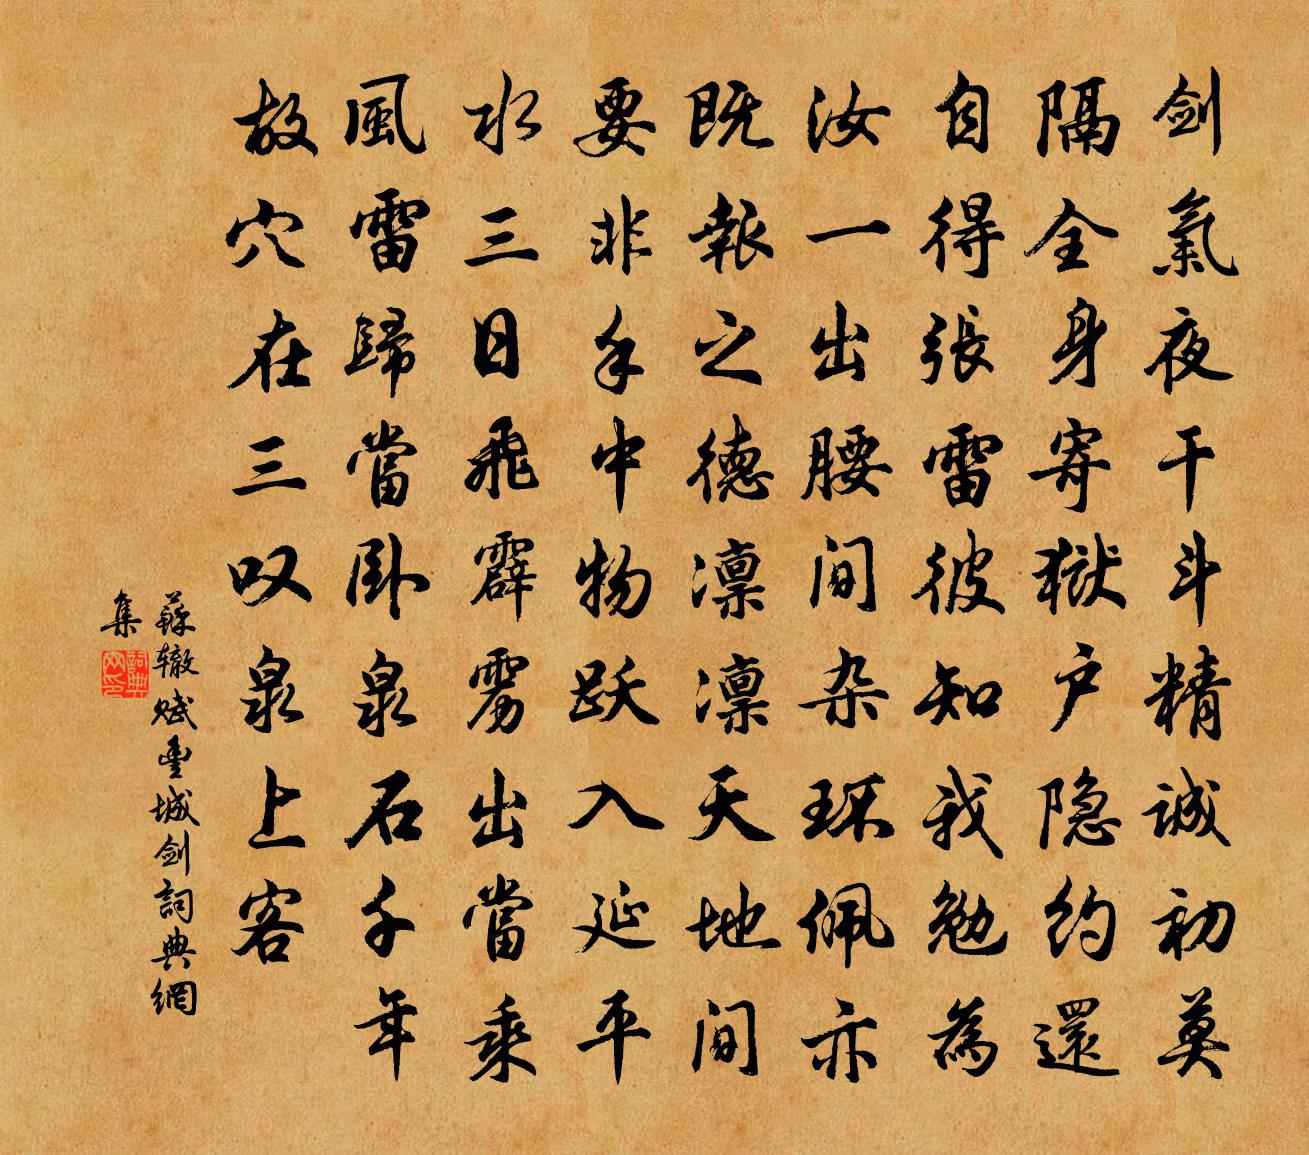 剑氣夜干斗精誠初莫
隔全身寄獄户隐约還
自得張雷彼知我勉為
汝一出腰间杂环佩亦
既報之德凛凛天地间
要非手中物跃入延平
水三日飛霹雳出當乘
風雷歸當卧泉石千年
故穴在三叹泉上客
蘇辙赋豐城剑詞典網
集
詞典網印